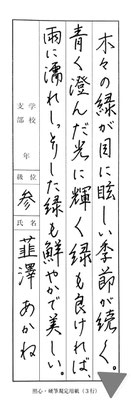 木々の緑が目に眩しい季節が続く。
青く澄んだ光に輝く緑も良ければ、
雨に濡れしっとりした緑も鮮やかで美しい。
学校
支部
年
級位
参
氏名
韮澤 あかね
照心・硬筆規定用紙（3行）